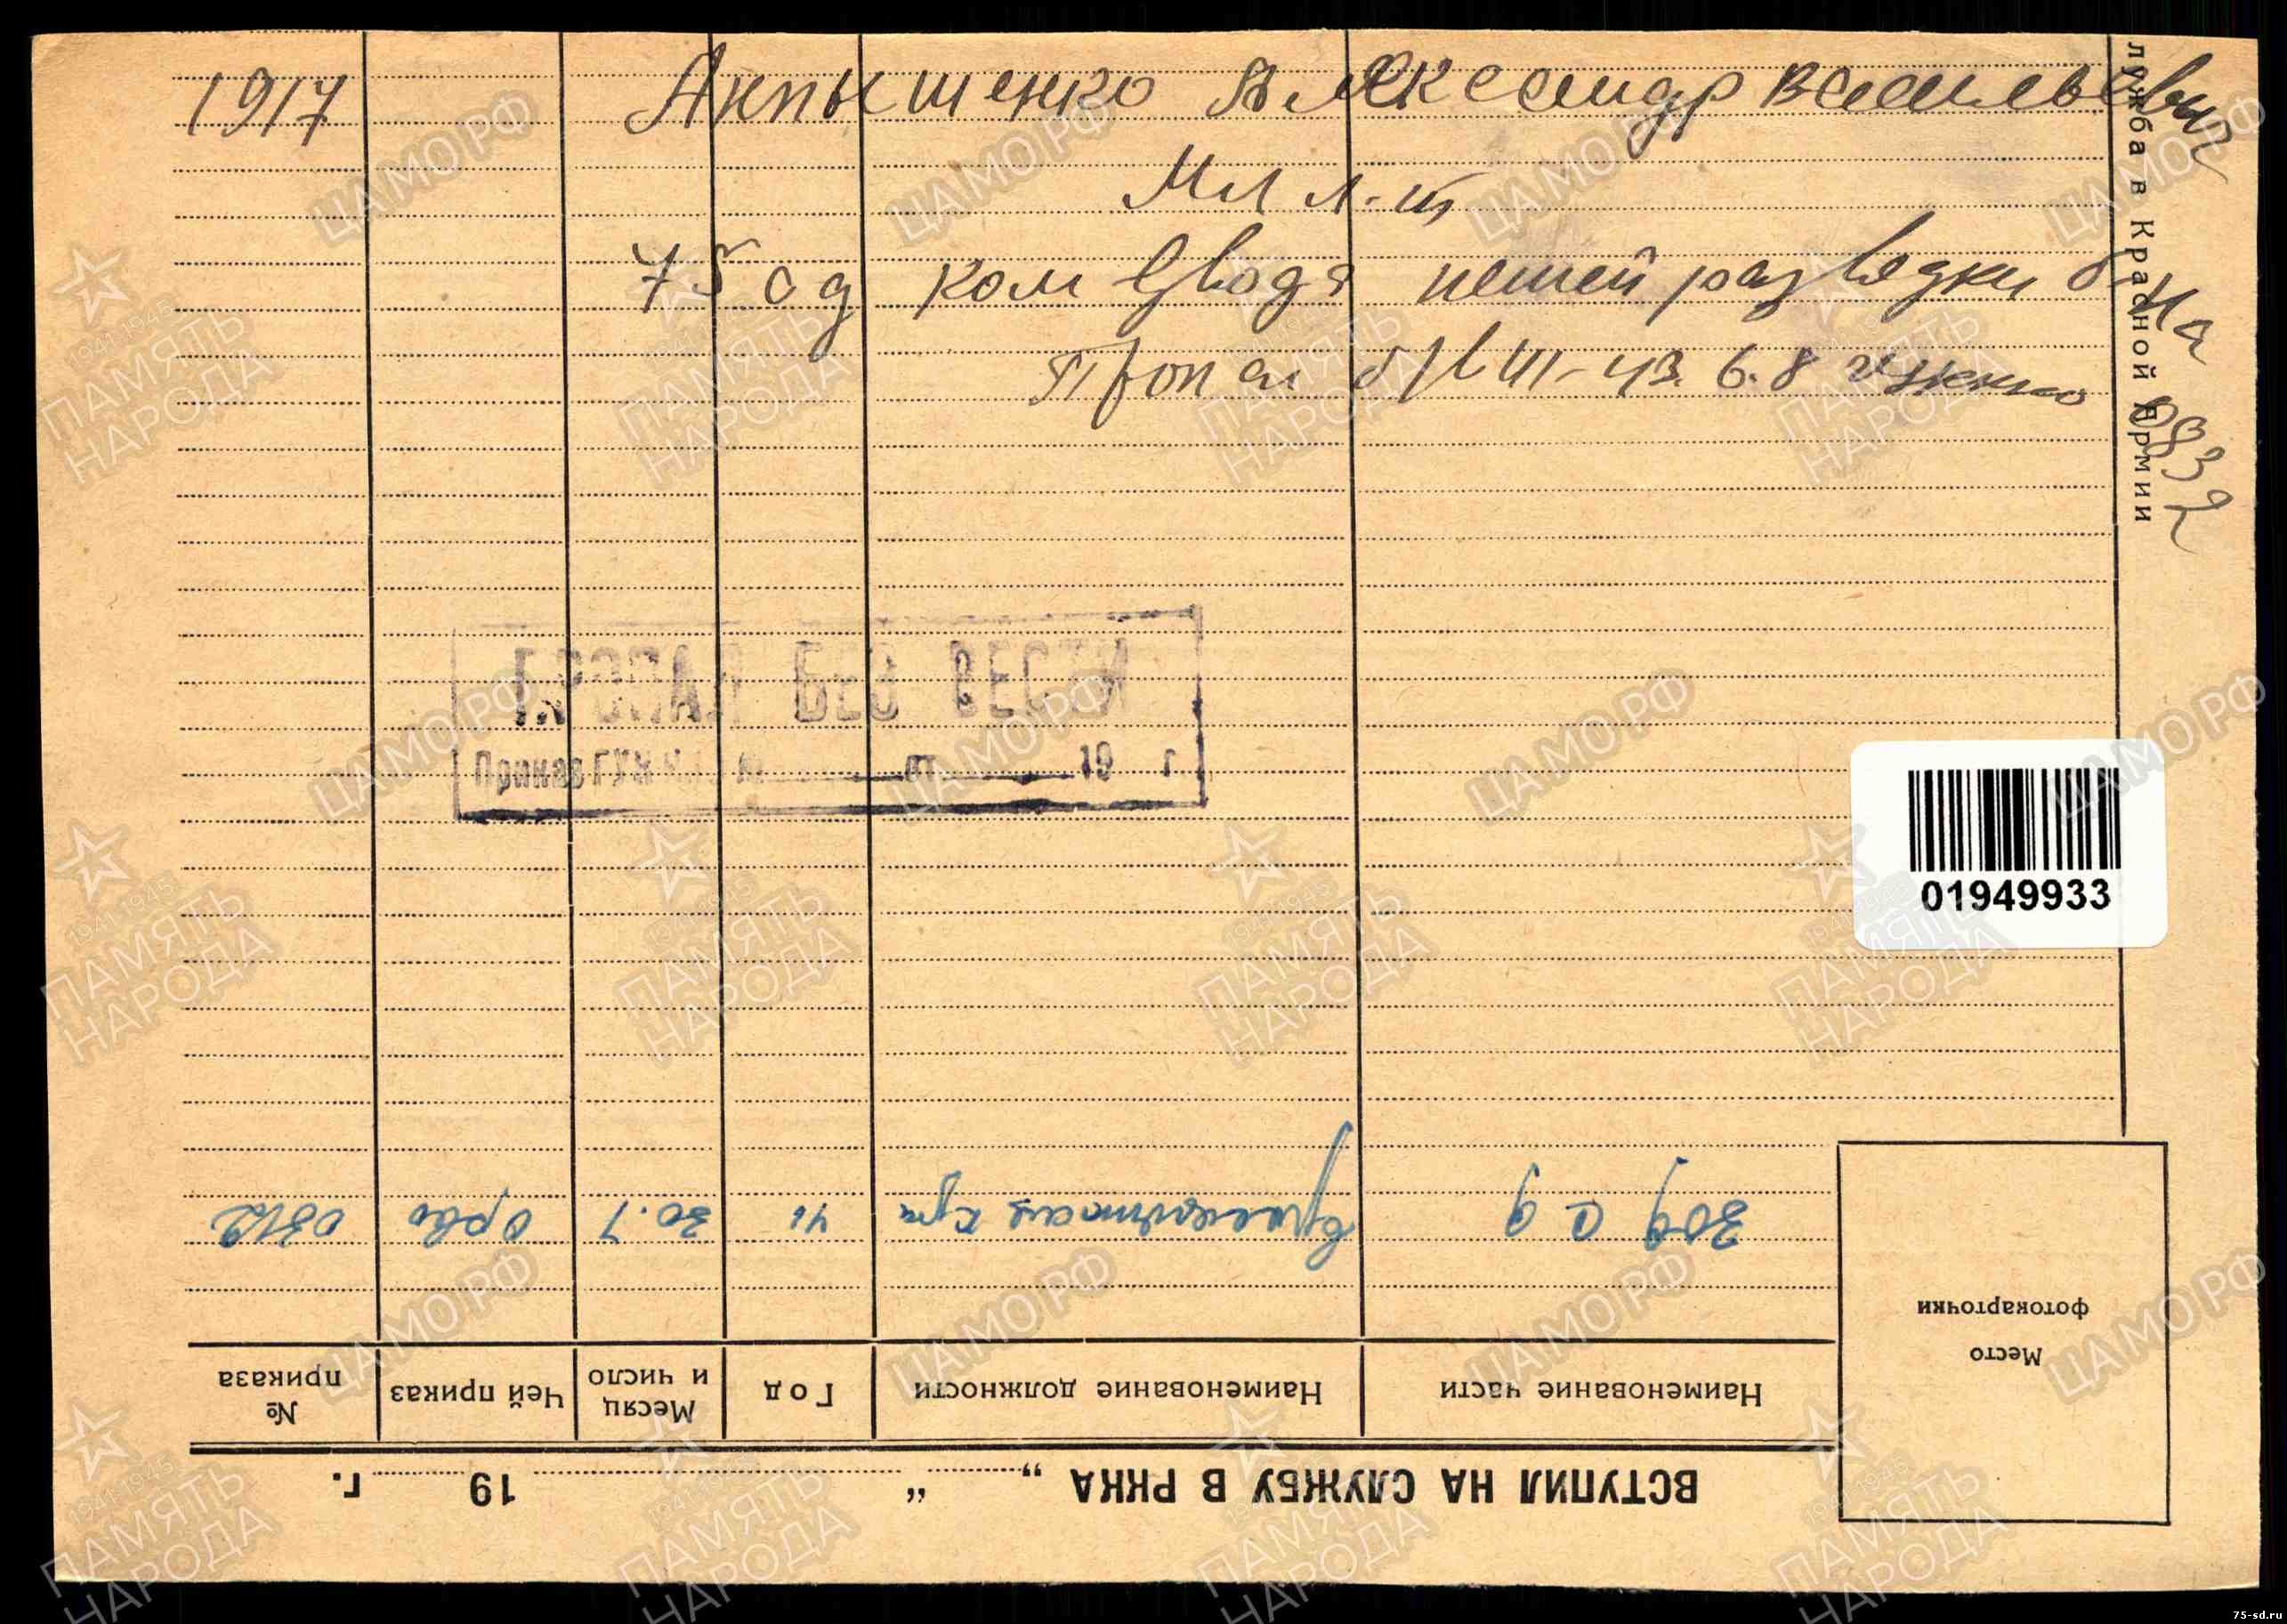 1917 Акпышенко Александр Васильевич
Мл л-т
75 сд ком взвода пешей разведки б-на
Пропал б/в III-43. 6.8 0832
лужба в Красной Армии
ПРОПАЛ БЕЗ ВЕСТИ
Приказ ГУК № от 19 г
01949933
Место
фотокарточки
ВСТУПИЛ НА СЛУЖБУ В РККА „ “ 19 г.
Наименование части Наименование должности Год Месяц и число Чей приказ № приказа
309 с д 41 30.7 0312
ЦАМО.РФ
1941-1945
ПАМЯТЬ
НАРОДА
75-sd.ru